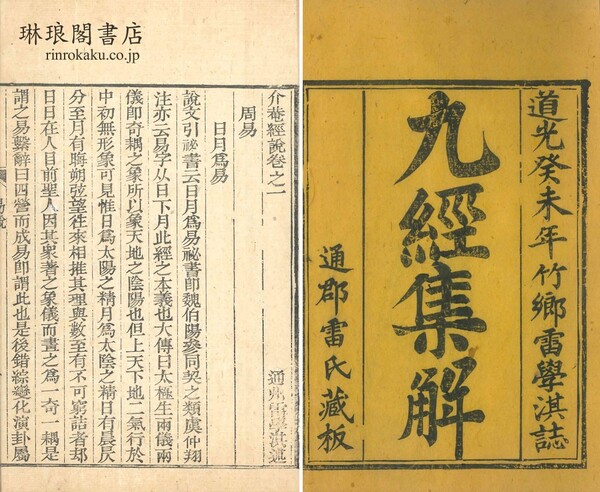 琳琅閣書店
rinrokaku.co.jp
道光癸未年竹鄉雷學淇誌
九經集解
通郡雷氏藏板
介菴經說卷之一
通州雷學淇述
周易
日月爲易
說文引祕書云日月爲易祕書即魏伯陽參同契之類虞仲翔
注亦云易字从日下月此經之本義也大傳曰太極生兩儀兩
儀即奇耦之象所以象天地之陰陽也但上天下地二氣行於
中初無形象可見惟日爲太陽之精月爲太陰之精日有晨昃
分至月有晦朔弦望往來相推其理與數至有不可窮詰者却
日日在人目前聖人因其㬎著之象儀而畫之爲一奇一耦是
謂之易繫辭曰四營而成易即謂此也是後錯綜變化演卦屬
易說